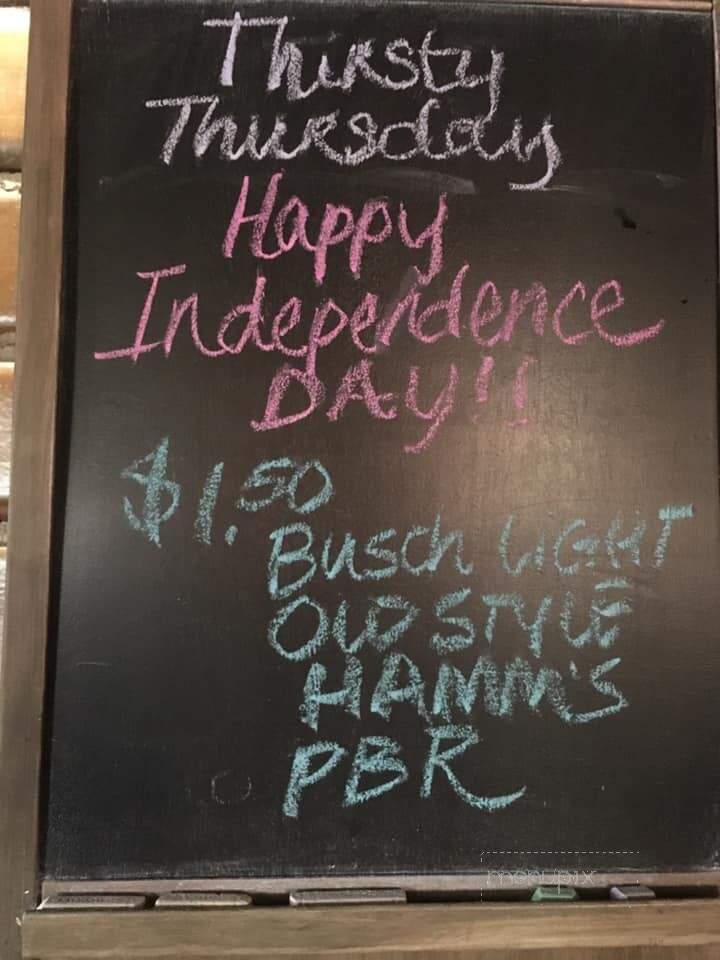 Thirsty
Thursday
Happy
Independence
DAY!!
$1.50
Busch LIGHT
OLD STYLE
HAMM'S
PBR
menupix